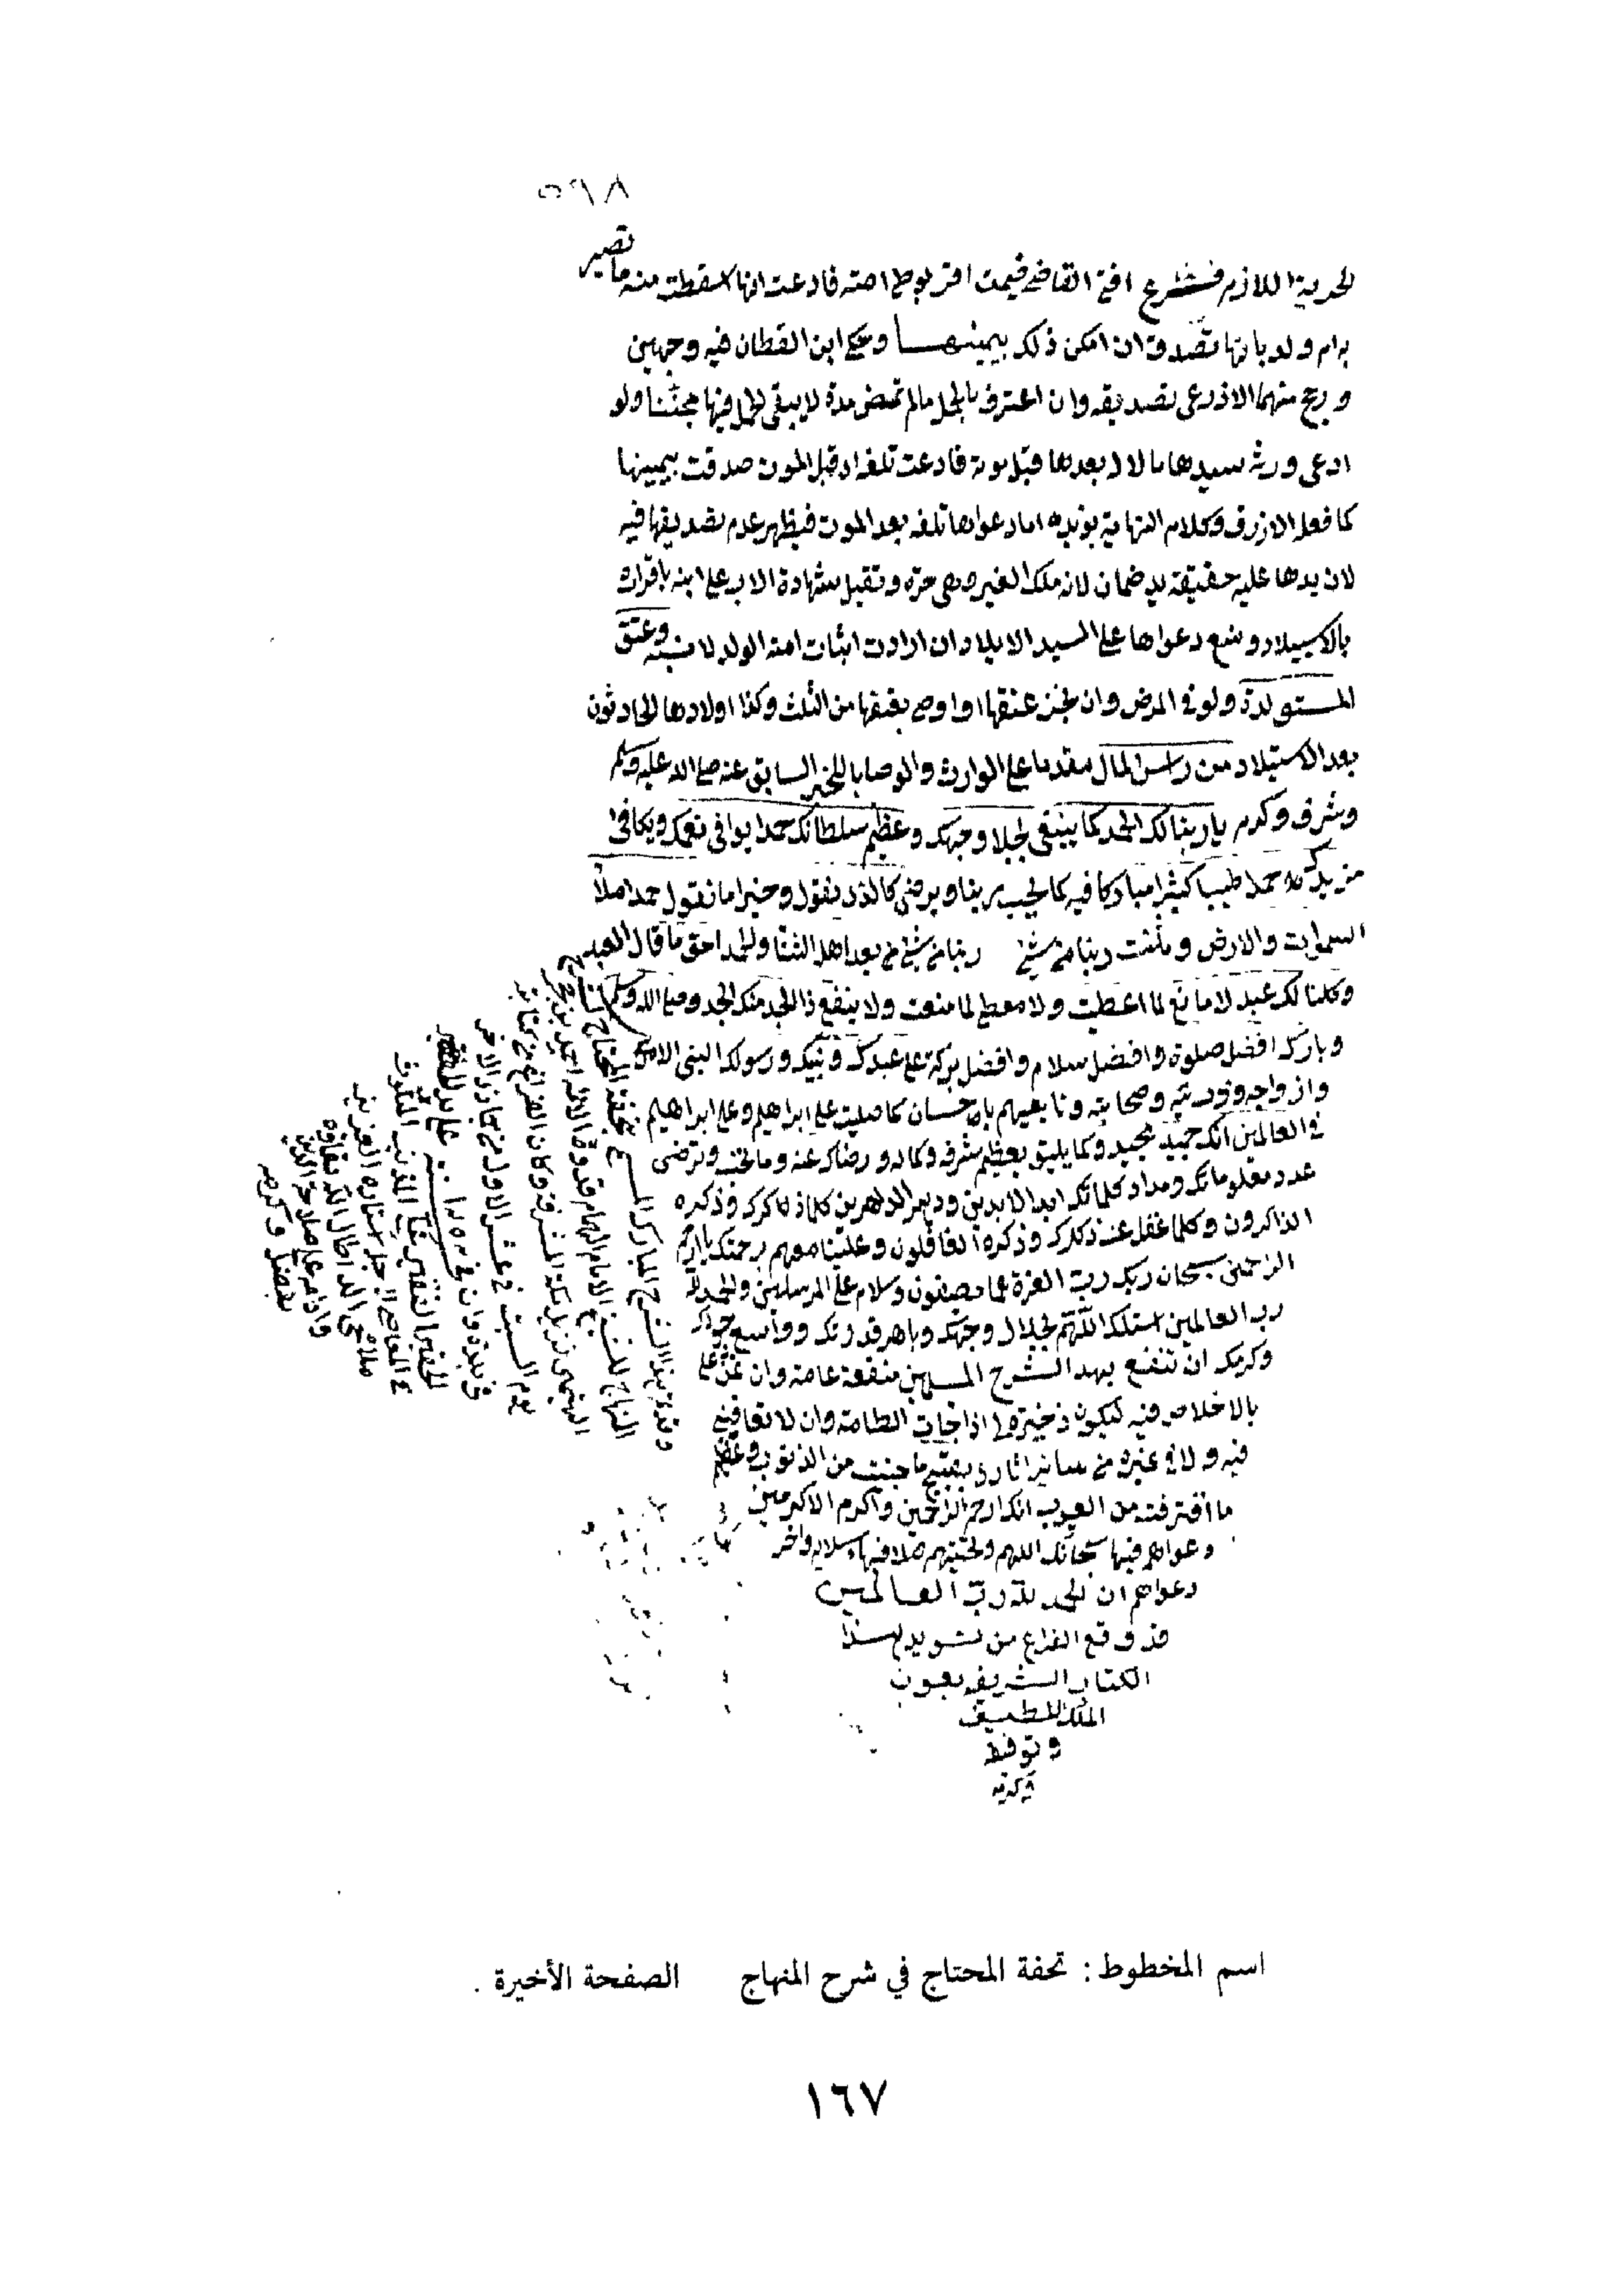 ٥٩٨
لحرية اللازم فرع افتى القاضي فيمن اقر بوطء امته فادعت انها اسقطت منه ما تصير
به ام ولد بانها تصدق ان امكن ذلك بيمينها وحكى ابن القطان فيه وجهين
ورجح منهما الاذرعى تصديقه وان اعترف بالحمل مالم تمض مدة لا يبقى الحمل فيها مجتنا ولو
ادعى ورثة سيدها مالا بيدها قبل موته فادعت تلفه قبل الموت صدقت بيمينها
كما فعله الازرق وكلام النهاية يؤيده اما دعواها تلفه بعد الموت فيظهر عدم تصديقها فيه
لان يدها عليه حقيقة يد ضمان لانه ملك الغير وهى حرة وتقبل شهادة الاب على ابنه باقراره
بالاستيلاد وتسمع دعواها على السيد الايلاد ان ارادت اثبات امية الولد لا نسبه وعتق
المستولدة ولو في المرض وان نجز عتقها او اوصى بعتقها من الثلث وكذا اولادها الحادثون
بعد الاستيلاد من راس المال مقدما على الوارث والوصايا للخبر السابق عنه صلى الله عليه وسلم
وشرف وكرم يا ربنا لك الحمد كما ينبغى لجلال وجهك وعظيم سلطانك حمدا يوافى نعمك ويكافئ
مزيدك حمدا طيبا كثيرا مباركا فيه كما يحب ربنا ويرضى كالذى نقول وخيرا مما نقول حمدا ملأ
السموات والارض وملئت ربنا من شئ ربنا من شئ بعد اهل الثنا والمجد احق ما قال العبد
وكلنا لك عبد لا مانع لما اعطيت ولا معطى لما منعت ولا ينفع ذا الجد منك الجد وصلى الله وسلم
وبارك افضل صلوة وافضل سلام وافضل بركة على عبدك ونبيك ورسولك النبى الامى
وازواجه وذريته وصحابته وتابعيهم باحسان كما صليت على ابراهيم وعلى ابراهيم
في العالمين انك حميد مجيد وكما يليق بعظيم شرفه وكماله ورضاك عنه وما تحب وترضى
عدد معلوماتك ومداد كلماتك ابد الابدين ودهر الداهرين كلما ذكرك وذكره
الذاكرون وكلما غفل عن ذكرك وذكره الغافلون وعلينا معهم برحمتك يا ارحم
الراحمين سبحان ربك رب العزة عما يصفون وسلام على المرسلين والحمد لله
رب العالمين اسئلك اللهم بجلال وجهك وباهر قدرتك وواسع جودك
وكرمك ان تنفع بهذا الشرح المسلمين منفعة عامة وان تمن على
بالاخلاص فيه ليكون ذخيرة لى اذا جاءت الطامة وان لا تعاقبنى
فيه ولا في غيره من سائر اثارى بقبيح ما جنيت من الذنوب وعظيم
ما اقترفت من العيوب انك ارحم الراحمين واكرم الاكرمين
دعواهم فيها سبحانك اللهم وتحيتهم فيها سلام واخر
دعواهم ان الحمد لله رب العالمين
قد وقع الفراغ من تسويد هذا
الكتاب الشريف بعون
الملك اللطيف
وتوفيقه
وكرمه
وقد تم هذا الشرح المبارك المسمى تحفة المحتاج لشرح
المنهاج للشيخ الامام الهمام قدوة الانام احمد بن حجر
الهيتمى نزيل مكة المشرفة وكان الفراغ من كتابته
يوم السبت في عشر الاول من جمادى الاخر
على يد
الفقير الحقير المذنب
اسم المخطوط : تحفة المحتاج في شرح المنهاج الصفحة الأخيرة .
١٦٧